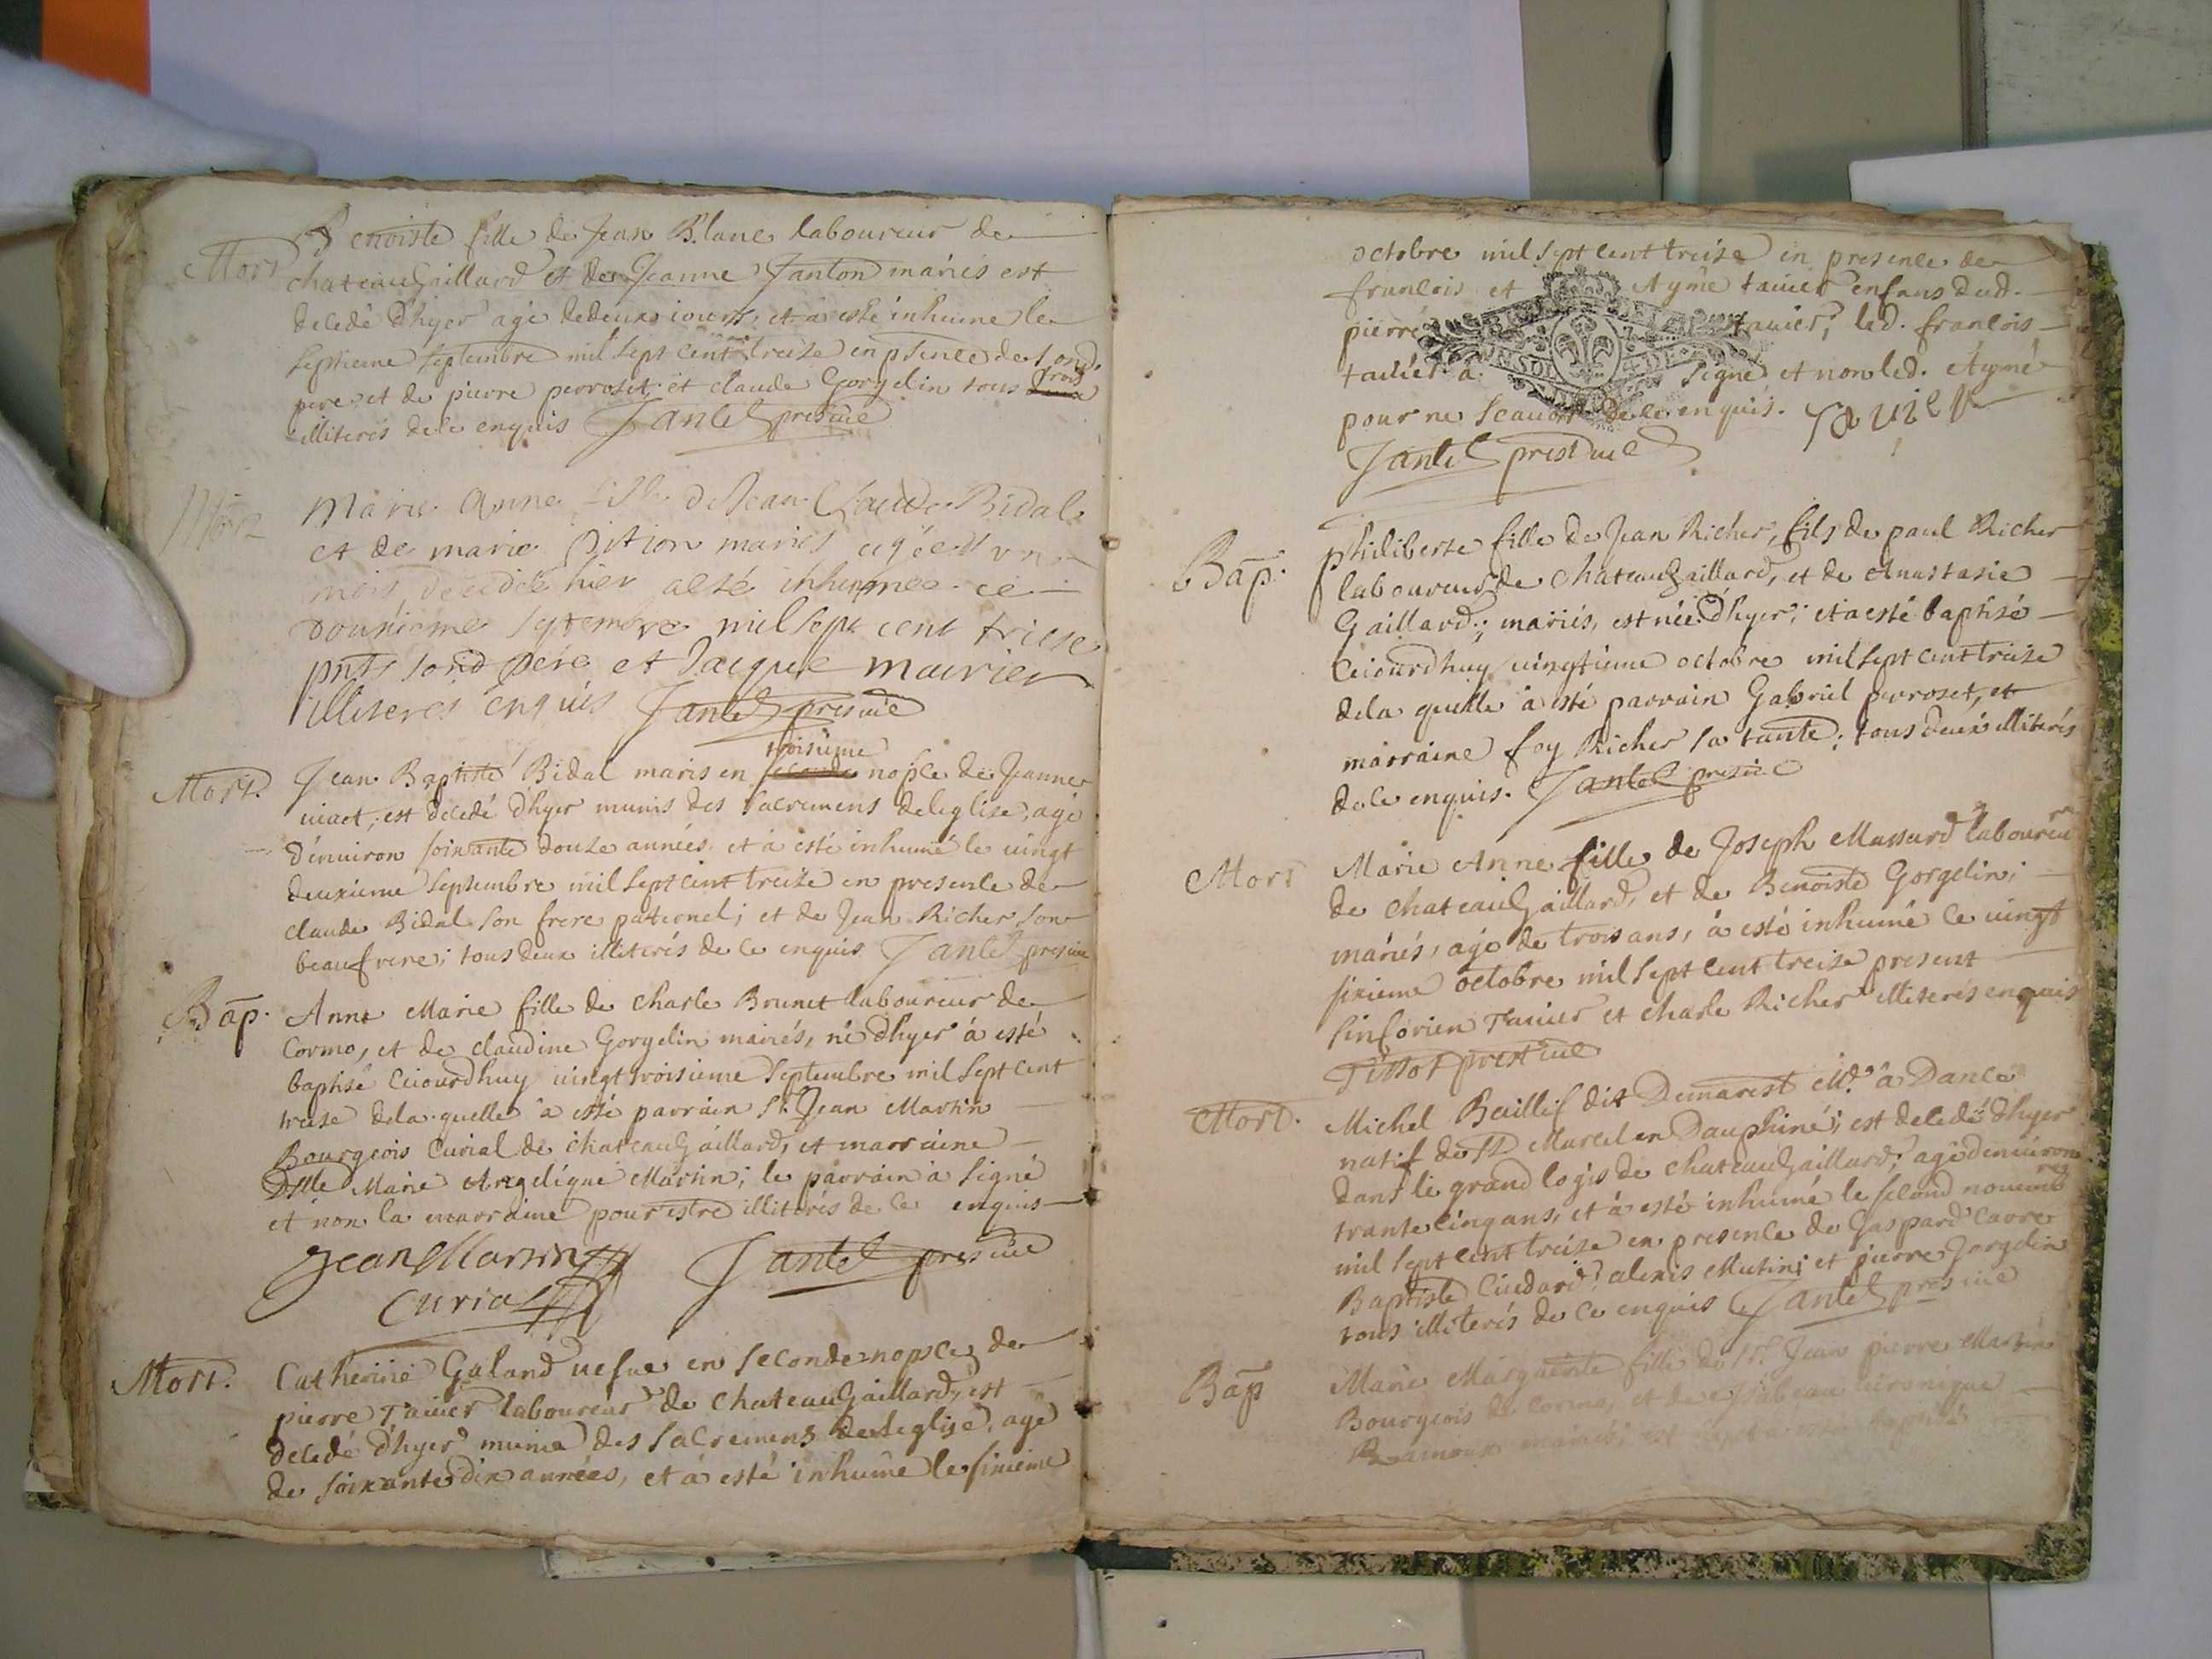 Mort
Benoiste fille de Jean Blanc laboureur de
chateauGaillard et de Jeanne Janton mariés est
decedé d'hyer agé de deux jours, et à esté inhumé le
septieme septembre mil sept cent treize en psence de sond.
pere, et de pierre perroset, et claude Gorgelin tous trois
illiterés de ce enquis Jantet pres vic
Mort
Marie Anne fille de Jean Claude Bidal
et de marie Pition mariés agée d'un
mois decedée hier a esté inhumée ce
dousieme septembre mil sept cent triese
pnts sond pere et Jacque mavrier
illiteres enquis Jantet pres vic
Mort.
troisieme
Jean Baptiste Bidal maris en seconde nopce de Jeanne
viact, est decedé d'hyer munis des sacremens de leglise, agé
d'environ soixante douze années et à esté inhumé le vingt
deuxieme septembre mil sept cent treize en presence de
claude Bidal son frere paternel; et de Jean Richer son
beaufrere; tous deux illiterés de ce enquis Jantet pres vic
Bap.
Anne Marie fille de charle Brunet laboureur de
Cormo, et de claudine Gorgelin mariés, né d'hyer à esté
baptisé cejourdhuy vingt troisieme septembre mil sept cent
treise dela quelle à esté parrain Sr. Jean Martin
Bourgeois Curial de chateauGaillard, et marraine
Dlle Marie Angelique Martin; le parrain à signé
et non la marraine pour estre illiterés de ce enquis
Jean Martin Jantet pres vic
Curial
Mort.
Catherine Galand vefve en seconde nopce de
pierre Tavier laboureur de chateauGaillard, est
decedé d'hyer munie des sacremens de leglise, agé
de soixante dix années, et à esté inhumé le sixieme
octobre mil sept cent treize en presence de
francois et Aymé tavier enfans dud.
pierre tavier, led. francois
tavier à signé et non led. Aymé
pour ne scavoir de ce enquis. Tavier
Jantet prest vic
Bap.
philiberte fille de Jean Richer, fils de paul Richer
laboureur de chateauGaillard, et de Anastasie
Gaillard; mariés, est née d'hyer; et a esté baptisé
cejourdhuy vingtieme octobre mil sept cent treize
dela quelle à esté parrain Gabriel perroset, et
marraine foy Richer sa tante; tous deux illiterés
de ce enquis. Jantet pres vic
Mort
Marie Anne fille de Joseph Massard laboureur
de chateauGaillard, et de Benoiste Gorgelin;
mariés, agé de trois ans, à esté inhumé le vingt
sixieme octobre mil sept cent treize present
sinforien Tavier et charle Richer illiterés enquis
Tissot prest vic
Mort.
Michel Baillif dit Demarest Md. à Dancé
natif de St Marcel en Dauphiné; est decedé d'hyer
dans le grand logis de chateauGaillard; agé denviron
trante cinq ans, et à esté inhumé le second novemb
re
mil sept cent treize en presence de Gaspard carre
Baptiste Cudard! alexis Mutin; et pierre Jorgelin
tous illiterés de ce enquis Jantet pres vic
Bap
Marie Marguerite fille de Sr. Jean pierre Martin
Bourgeois de Cormo, et de ysabeau veronique
mariés; est